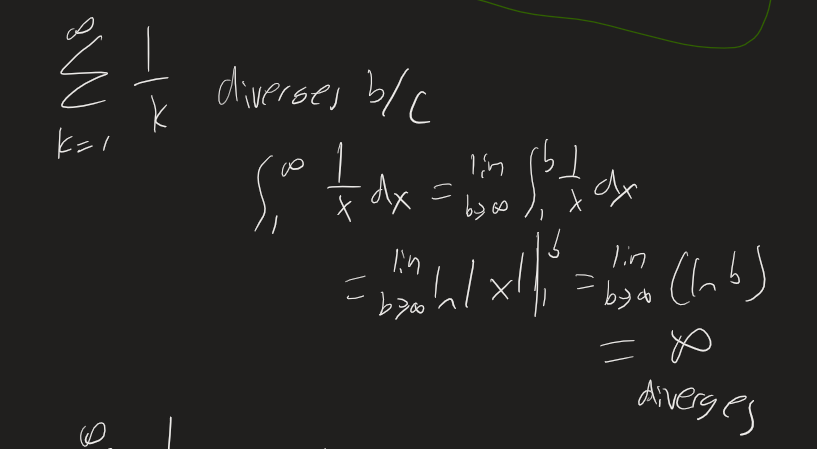 ∞∑k=1 1/k diverges b/c
∫₁^∞ 1/x dx = lim b→∞ ∫₁^b 1/x dx
= lim b→∞ ln|x| |₁^b = lim b→∞ (ln b)
= ∞
diverges
∞ 1